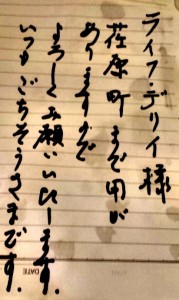 ライフデリイ様
荏原町まで用が
ありますので
よろしくお願いいたします。
いつもごちそうさまです。
DATE